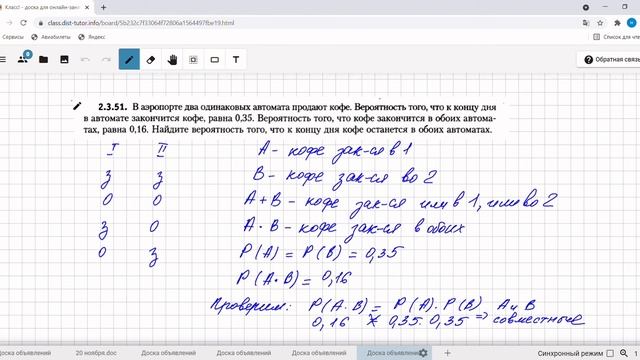 Класс! - доска для онлайн-зан
class.dist-tutor.info/board/5b232c7f33064f72806a1564497fbe19.html
Сервисы Авиабилеты Яндекс
Список для чте
Обратная связь
2.3.51. В аэропорте два одинаковых автомата продают кофе. Вероятность того, что к концу дня
в автомате закончится кофе, равна 0,35. Вероятность того, что кофе закончится в обоих автома-
тах, равна 0,16. Найдите вероятность того, что к концу дня кофе останется в обоих автоматах.
I II A - кофе зак-ся в 1
з з B - кофе зак-ся во 2
О О A + B - кофе зак-ся или в 1, или во 2
з О A · B - кофе зак-ся в обоих
О з P(A) = P(B) = 0,35
P(A·B) = 0,16
Проверим: P(A·B) = P(A)·P(B) A и B
0,16 ≠ 0,35·0,35 => совместные
Доска объявлений 20 ноября.doc Доска объявлений Доска объявлений Доска объявлений Доска объявлений
Синхронный режим 1